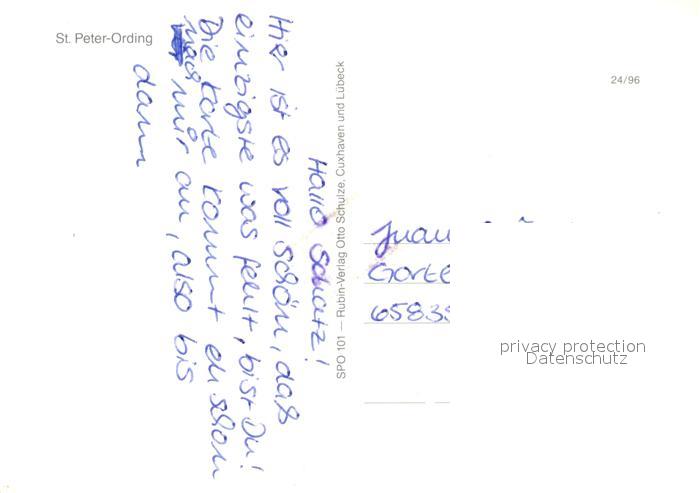 St. Peter-Ording
24/96
Hallo Schatz!
Hier ist es voll schön, daß
einzigste was fehlt, bist Du!
Die Karte kommt eh schon
nach mir an, also bis
dann
SPO 101 — Rubin-Verlag Otto Schulze, Cuxhaven und Lübeck
Juan
Garte
6583
privacy protection
Datenschutz